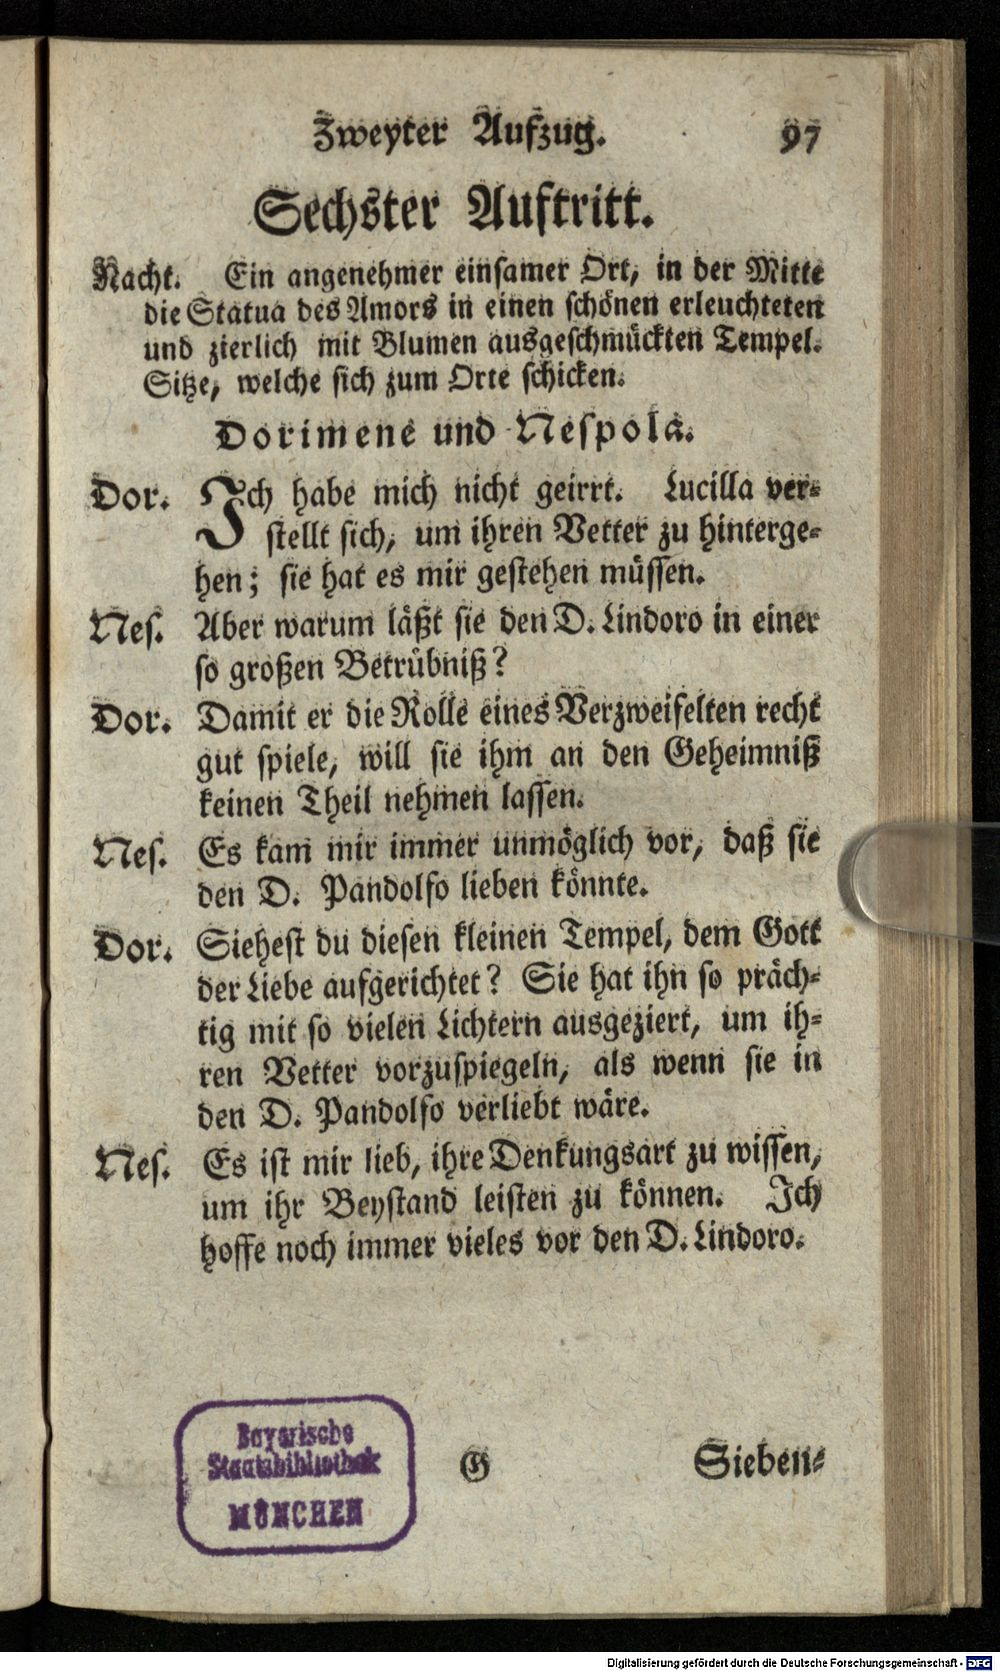 Zweyter Aufzug. 97
Sechster Auftritt.
Nacht. Ein angenehmer einsamer Ort, in der Mitte
die Statua des Amors in einen schönen erleuchteten
und zierlich mit Blumen ausgeschmückten Tempel.
Sitze, welche sich zum Orte schicken.
Dorimene und Nespola.
Dor. Ich habe mich nicht geirrt. Lucilla ver=
stellt sich, um ihren Vetter zu hinterge=
hen; sie hat es mir gestehen müssen.
Nes. Aber warum läßt sie den D. Lindoro in einer
so großen Betrübniß?
Dor. Damit er die Rolle eines Verzweifelten recht
gut spiele, will sie ihm an den Geheimniß
keinen Theil nehmen lassen.
Nes. Es kam mir immer unmöglich vor, daß sie
den D. Pandolfo lieben könnte.
Dor. Siehest du diesen kleinen Tempel, dem Gott
der Liebe aufgerichtet? Sie hat ihn so präch=
tig mit so vielen Lichtern ausgeziert, um ih=
ren Vetter vorzuspiegeln, als wenn sie in
den D. Pandolfo verliebt wäre.
Nes. Es ist mir lieb, ihre Denkungsart zu wissen,
um ihr Beystand leisten zu können. Ich
hoffe noch immer vieles vor den D. Lindoro.
G Sieben=
Bayerische
Staatsbibliothek
MÜNCHEN
Digitalisierung gefördert durch die Deutsche Forschungsgemeinschaft - DFG